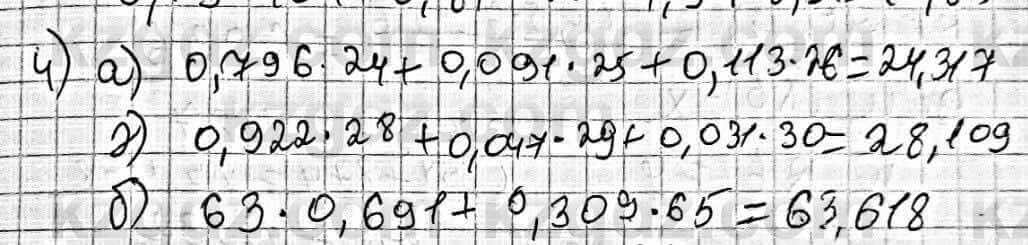 4) а) 0,796·24+0,091·25+0,113·26=24,317
г) 0,922·28+0,047·29+0,031·30=28,109
б) 63·0,691+0,309·65=63,618